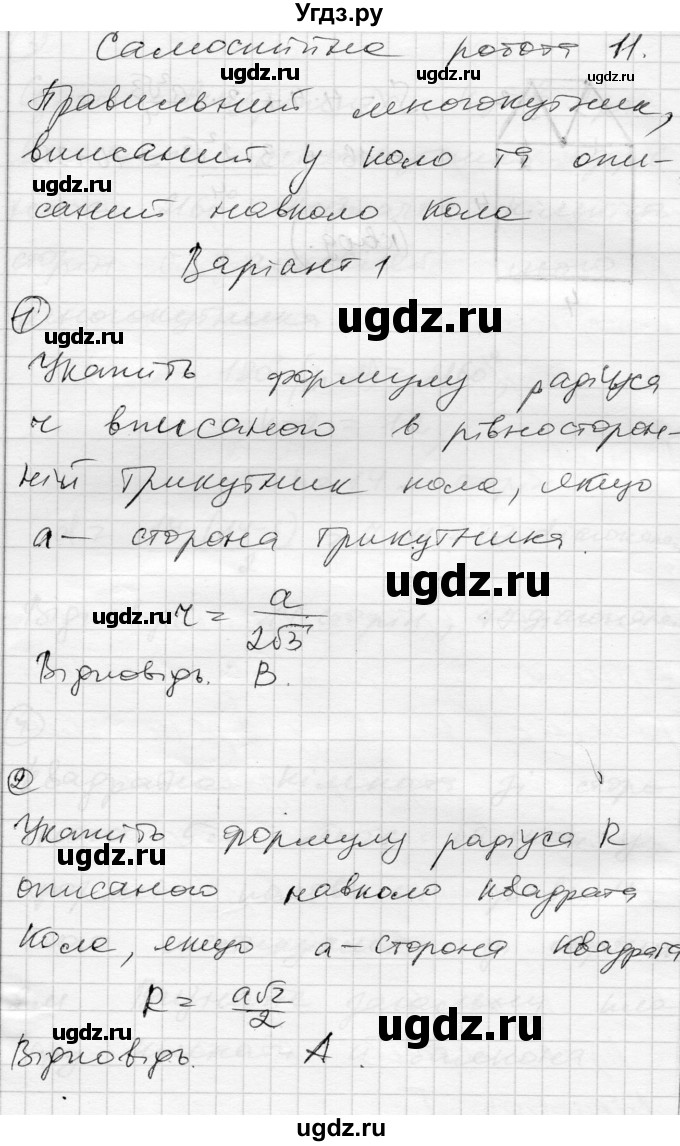 Угдз.ру
Самостійна робота 11.
ugdz.ru ugdz.ru
Правильний многокутник,
вписаний у коло та опи-
ugdz.ru
саний навколо кола
Варіант 1
ugdz.ru
1
ugdz.ru
Укажіть формулу радіуса
r вписаного в рівносторон-
ній трикутник кола, якщо
a – сторона трикутника.
ugdz.ru
ugdz.ru r = a/2√3
Відповідь. В.
2
Укажіть формулу радіуса R
ugdz.ru
описаного навколо квадрата
кола, якщо a – сторона квадрата
R = a√2/2
ugdz.ru ugdz.ru
Відповідь. А.
ugdz.ru